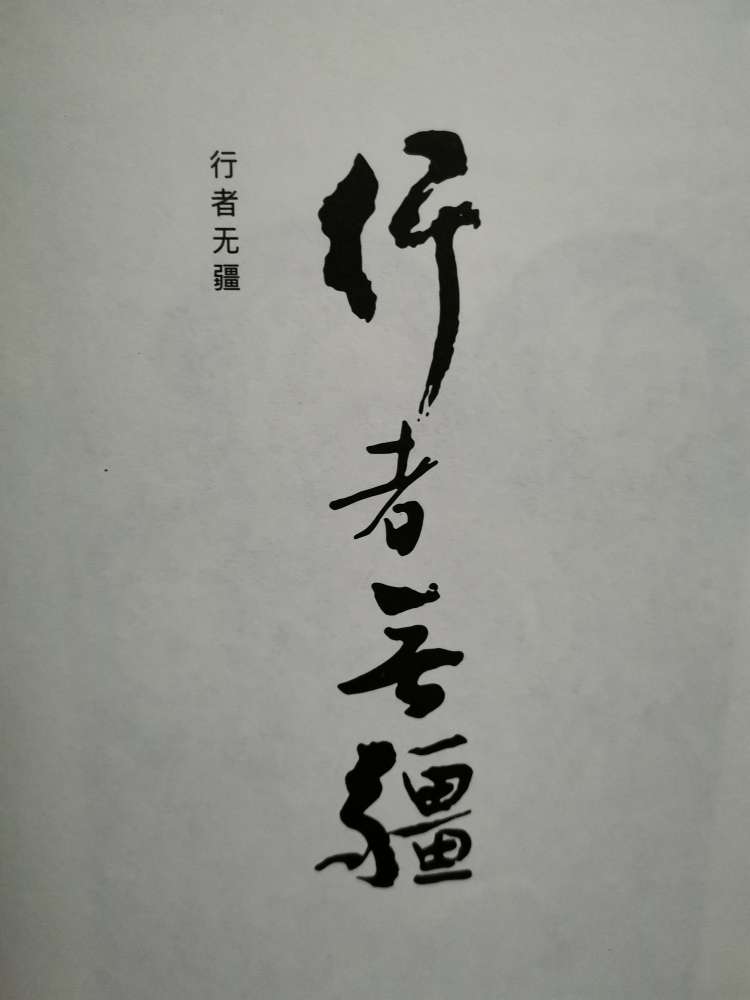 行者無疆
行者无疆